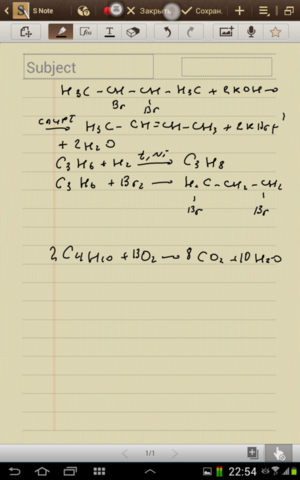 S Note
Закрыть
Сохран.
Subject
H₃C - CH - CH - H₃C + 2KOH →
Br Br
спирт → H₃C - CH = CH - CH₃ + 2KBr +
+ 2H₂O
C₃H₆ + H₂ t, Ni → C₃H₈
C₃H₆ + Br₂ → H₂C - CH₂ - CH₂
Br Br
2C₄H₁₀ + 13O₂ → 8CO₂ + 10H₂O
1/1
22:54